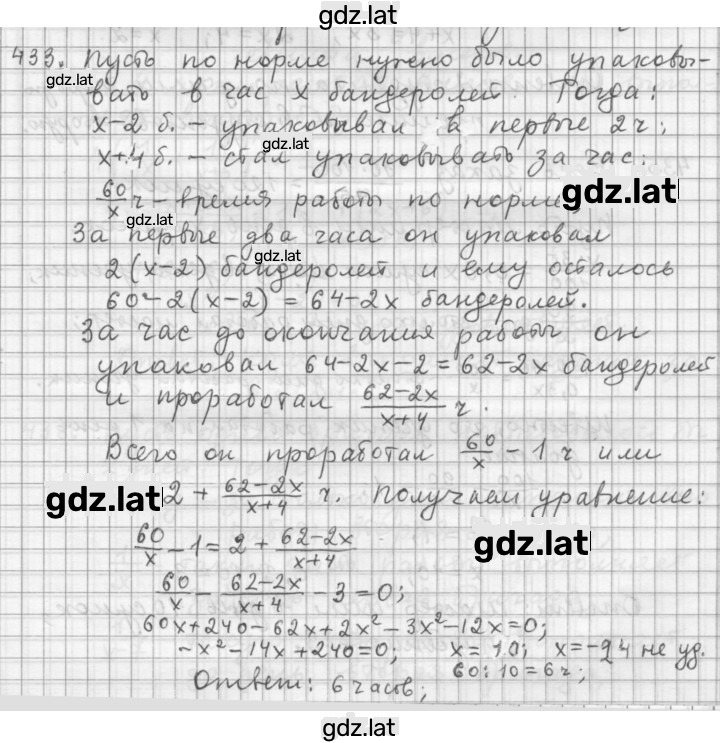 gdz.lat
433. Пусть по норме нужно было упаковы-
gdz.lat
вать в час x бандеролей. Тогда:
x-2 б. - упаковывал в первые 2ч;
x+4 б. - стал упаковывать за час;
60/x ч - время работы по норме;
gdz.lat
gdz.lat
За первые два часа он упаковал
gdz.lat
2(x-2) бандеролей и ему осталось
60-2(x-2) = 64-2x бандеролей.
За час до окончания работы он
упаковал 64-2x-2 = 62-2x бандеролей
и проработал (62-2x)/(x+4) ч.
Всего он проработал 60/x - 1 ч или
gdz.lat
2 + (62-2x)/(x+4) ч. Получаем уравнение:
60/x - 1 = 2 + (62-2x)/(x+4)
gdz.lat
60/x - (62-2x)/(x+4) - 3 = 0;
60x+240-62x+2x²-3x²-12x=0;
-x²-14x+240=0; x=10; x=-24 не уд.
60:10=6ч;
Ответ: 6 часов;
gdz.lat